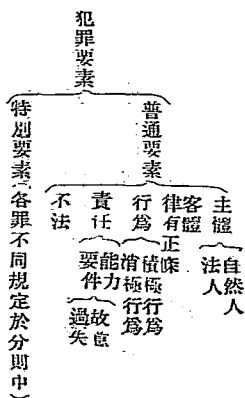 犯罪要素
普通要素
主體
自然人
法人
客體
律有正條
行為
積極行為
消極行為
責任
能力
要件
故意
過失
不法
特別要素(各罪不同規定於分則中)